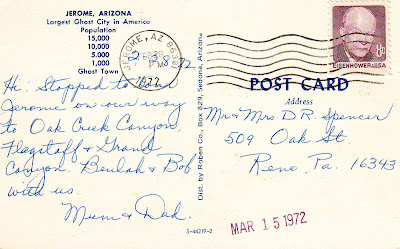 JEROME, ARIZONA
Largest Ghost City in America
Population
15,000
10,000
5,000
1,000
Ghost Town
JEROME, AZ 86331
PM
1972
8c
EISENHOWER·USA
Hi: Stopped to tour
Jerome on our way
to Oak Creek Canyon,
Flagstaff & Grand
Canyon. Beulah & Bob
with us.
Mum & Dad.
5-44219-2
Dist. by Roben Co., Box 829, Sedona, Arizona
POST CARD
Address
Mr & Mrs D R Spencer
509 Oak St.
Reno, Pa. 16343
MAR 15 1972